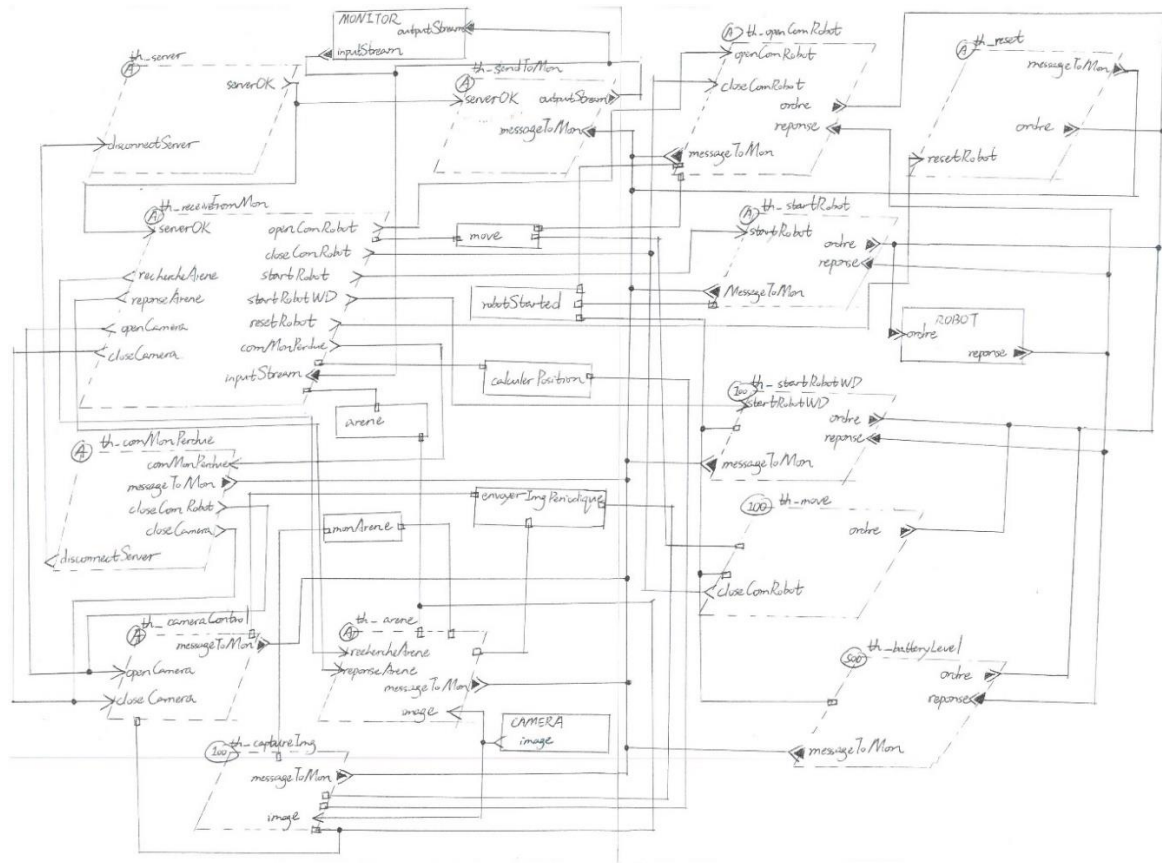 MONITOR
outputStream
inputStream
A th_server
serverOK
disconnectServer
A th_sendToMon
serverOK
outputStream
messageToMon
A th_openComRobot
openComRobot
closeComRobot
ordre
reponse
messageToMon
A th_reset
messageToMon
ordre
resetRobot
A th_receiveFromMon
serverOK
openComRobot
closeComRobot
rechercheArene
startRobot
reponseArene
startRobotWD
openCamera
resetRobot
closeCamera
comMonPerdue
inputStream
move
robotStarted
calculerPosition
arene
A th_startRobot
startRobot
ordre
reponse
MessageToMon
ROBOT
ordre
reponse
100 th_startRobotWD
startRobotWD
ordre
reponse
messageToMon
A th_comMonPerdue
comMonPerdue
messageToMon
closeComRobot
closeCamera
disconnectServer
envoyerImgPeriodique
monArene
100 th_move
ordre
closeComRobot
A th_cameraControl
messageToMon
openCamera
closeCamera
A th_arene
rechercheArene
reponseArene
messageToMon
image
CAMERA
image
500 th_batteryLevel
ordre
reponse
messageToMon
100 th_captureImg
messageToMon
image